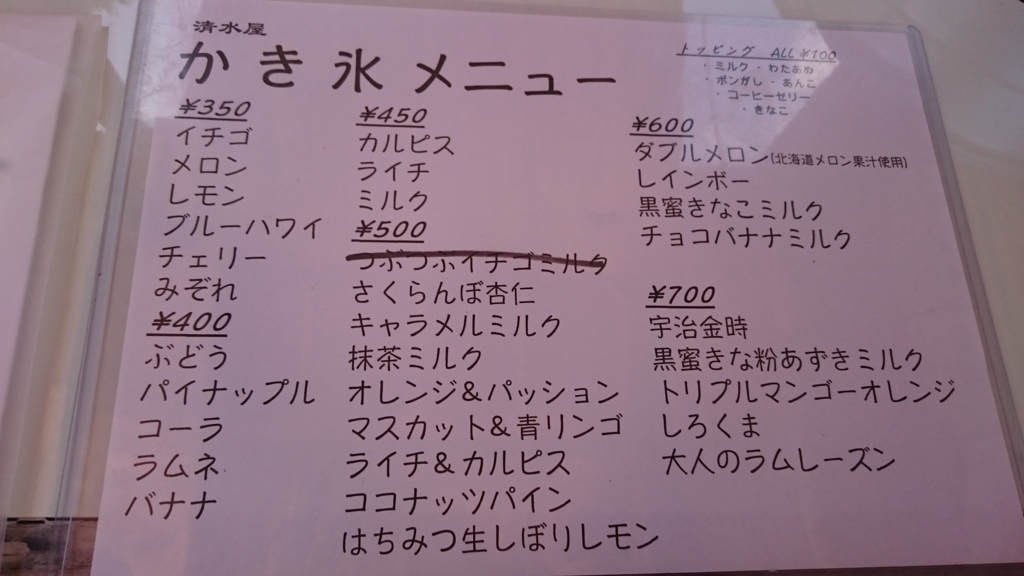 清水屋
かき氷メニュー
トッピング ALL ¥100
・ミルク ・わたあめ
・ポンがし ・あんこ
・コーヒーゼリー
・きなこ
¥350
イチゴ
メロン
レモン
ブルーハワイ
チェリー
みぞれ
¥400
ぶどう
パイナップル
コーラ
ラムネ
バナナ
¥450
カルピス
ライチ
ミルク
¥500
つぶつぶイチゴミルク
さくらんぼ杏仁
キャラメルミルク
抹茶ミルク
オレンジ&パッション
マスカット&青リンゴ
ライチ&カルピス
ココナッツパイン
はちみつ生しぼりレモン
¥600
ダブルメロン(北海道メロン果汁使用)
レインボー
黒蜜きなこミルク
チョコバナナミルク
¥700
宇治金時
黒蜜きな粉あずきミルク
トリプルマンゴーオレンジ
しろくま
大人のラムレーズン